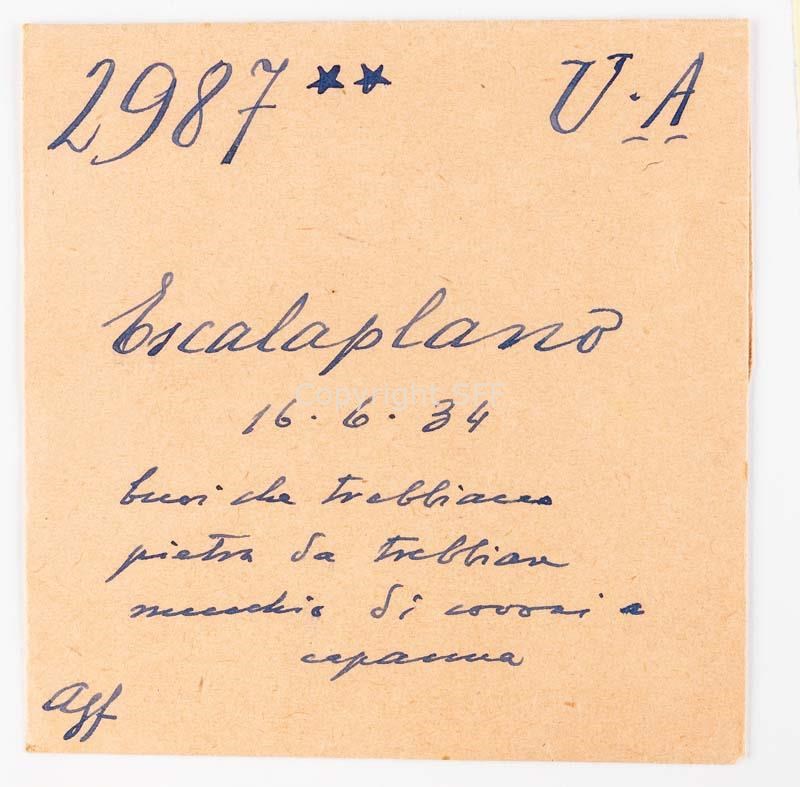 2987 ★★ U.A
Escalaplano
Copyright SFF
16.6.34
buoi che trebbiano
pietra da trebbiare
mucchio di covoni a
capanna
Agf